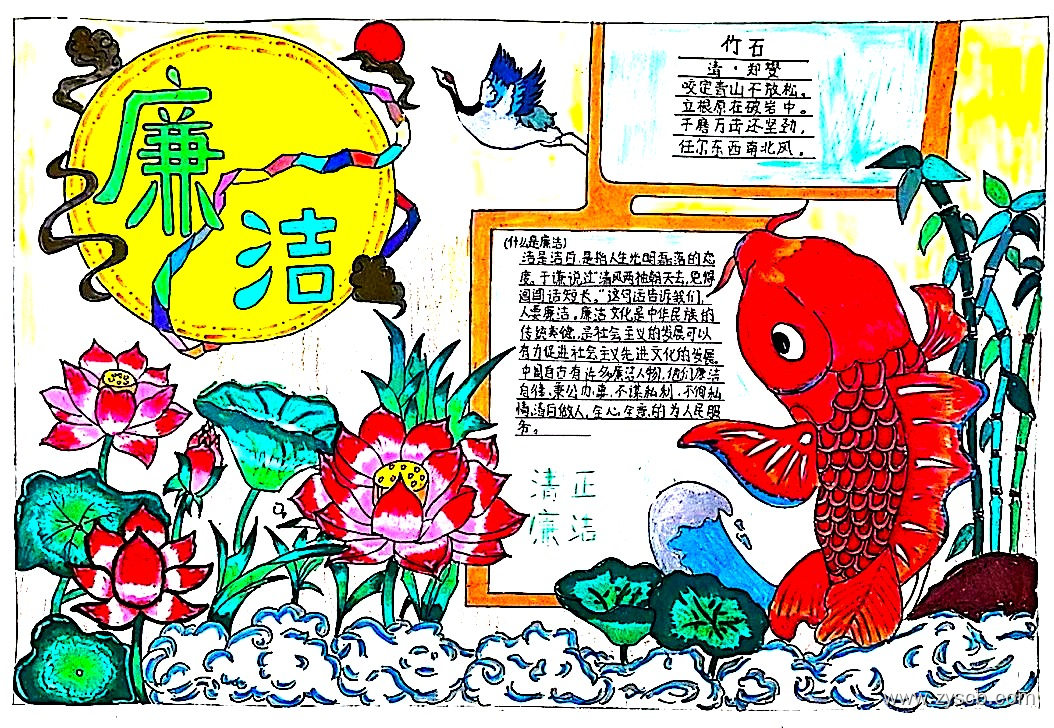 廉
洁
竹石
清·郑燮
咬定青山不放松,
立根原在破岩中。
千磨万击还坚劲,
任尔东西南北风。
(什么是廉洁)
洁是洁白,是指人生光明磊落的态
度。于谦说过"清风两袖朝天去,免得
闾阎话短长。"这句话告诉我们,
人要廉洁。廉洁文化是中华民族的
传统美德,是社会主义的发展可以
有力促进社会主义先进文化的发展。
中国自古有许多廉洁人物,他们廉洁
自律,秉公办事,不谋私利,不徇私
情,洁白做人,全心全意的为人民服
务。
清正
廉洁
www.zyscb.com